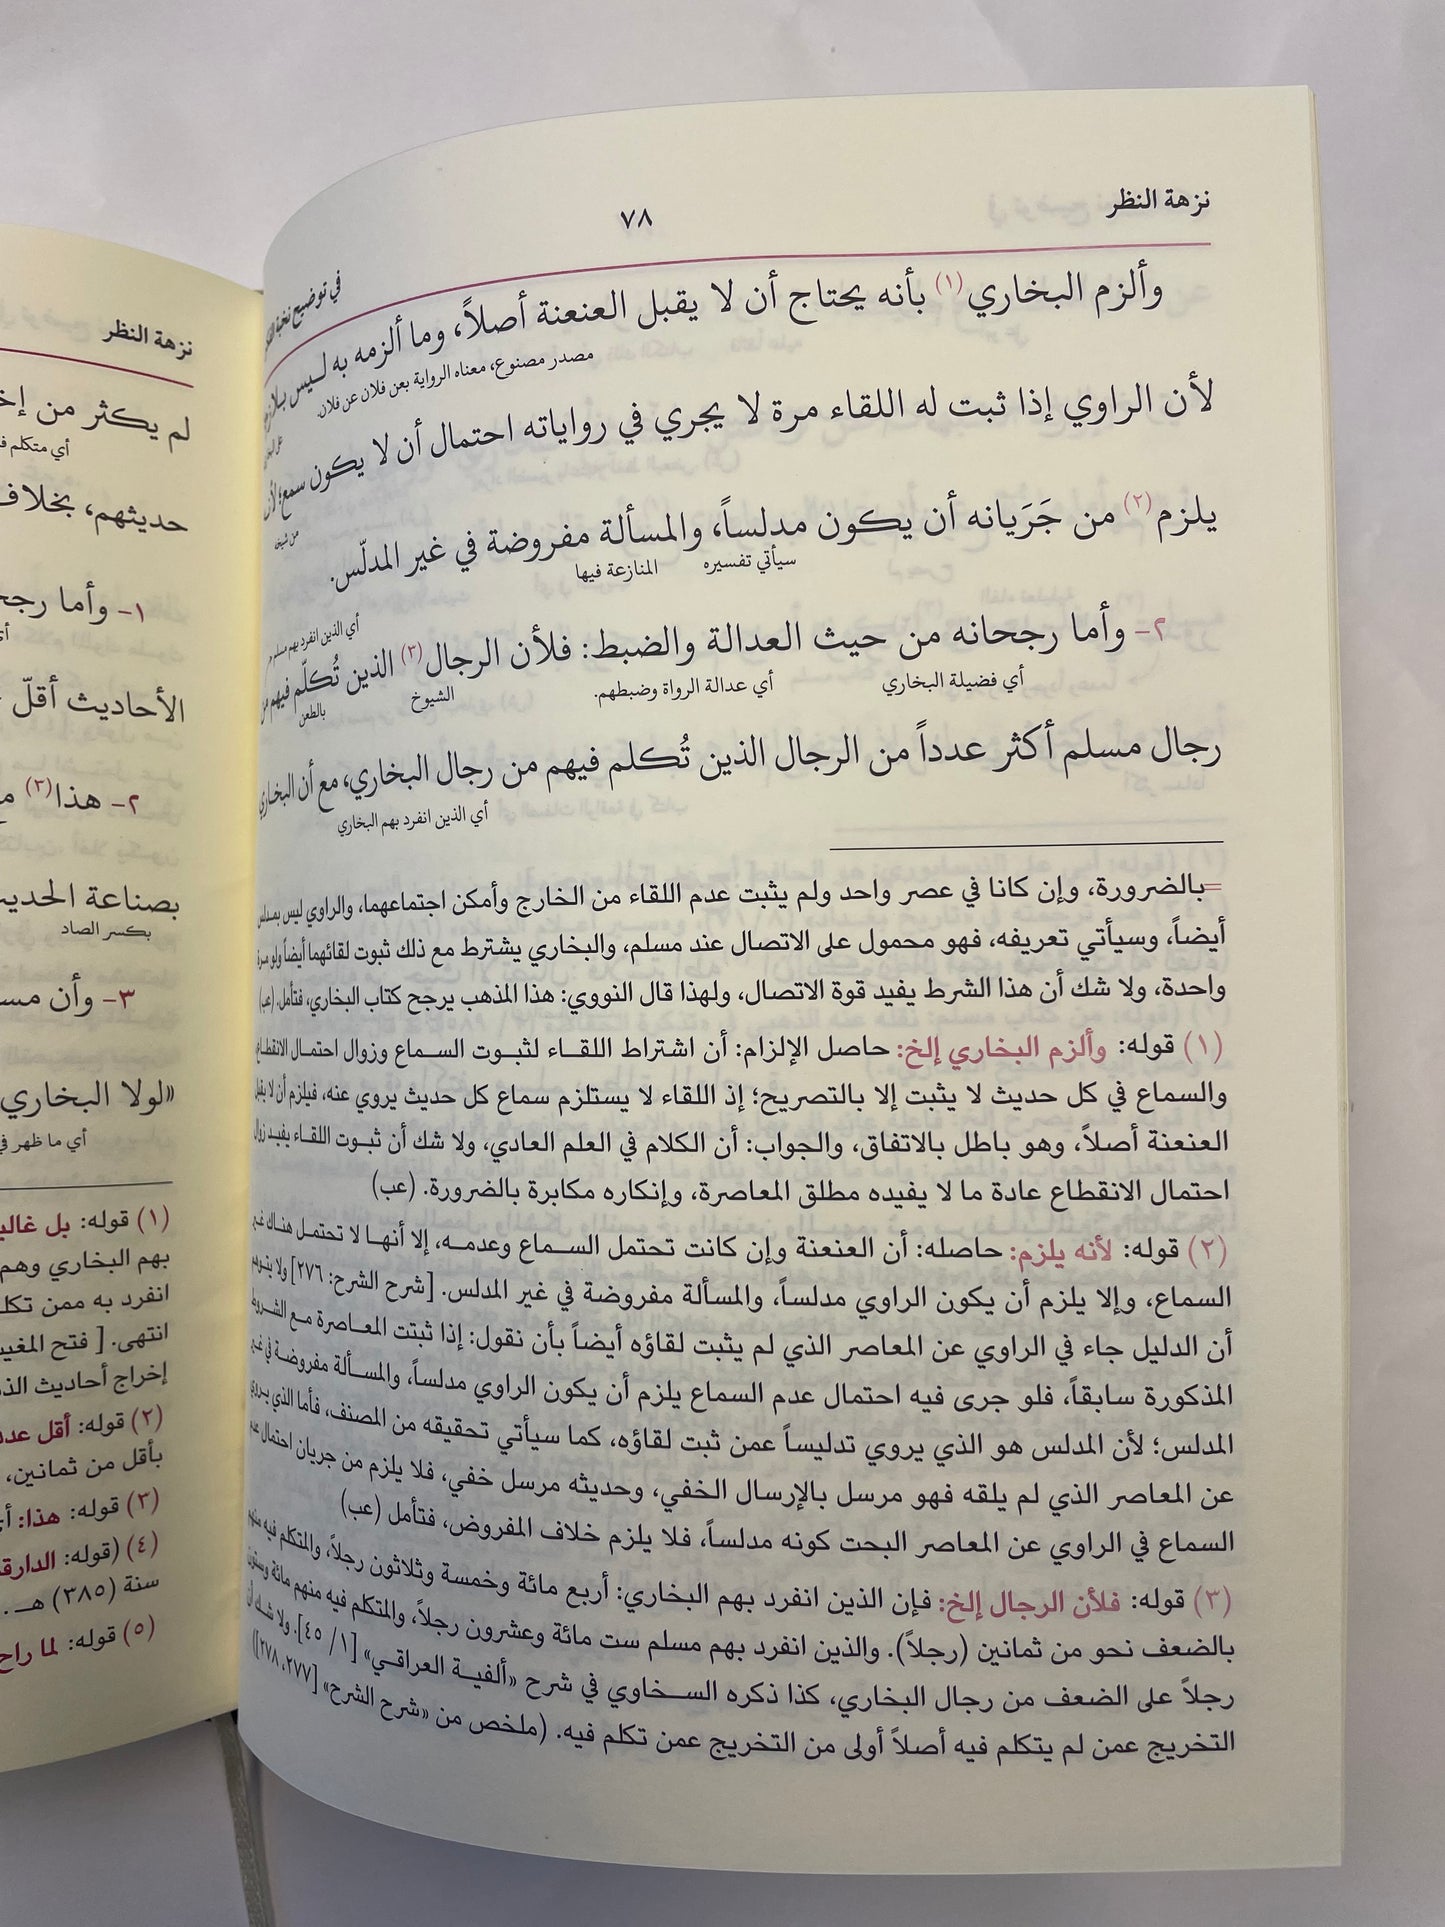 نزهة النظر
٧٨
في توضيح نخبة
وألزم البخاري(١) بأنه يحتاج أن لا يقبل العنعنة أصلاً، وما ألزمه به ليس بلازم
مصدر مصنوع، معناه الرواية بعن فلان عن فلان.
لأن الراوي إذا ثبت له اللقاء مرة لا يجري في رواياته احتمال أن لا يكون سمع؛ لأن
من شيخه
يلزم(٢) من جَرَيانه أن يكون مدلساً، والمسألة مفروضة في غير المدلّس.
سيأتي تفسيره المنازعة فيها
أي الذين انفرد بهم مسلم
٢- وأما رجحانه من حيث العدالة والضبط: فلأن الرجال(٣) الذين تُكلّم فيهم من
أي فضيلة البخاري أي عدالة الرواة وضبطهم. الشيوخ بالطعن
رجال مسلم أكثر عدداً من الرجال الذين تُكلم فيهم من رجال البخاري، مع أن البخاري
أي الذين انفرد بهم البخاري
=بالضرورة، وإن كانا في عصر واحد ولم يثبت عدم اللقاء من الخارج وأمكن اجتماعهما، والراوي ليس بمدلس
أيضاً، وسيأتي تعريفه، فهو محمول على الاتصال عند مسلم، والبخاري يشترط مع ذلك ثبوت لقائهما أيضاً ولو مرة
واحدة، ولا شك أن هذا الشرط يفيد قوة الاتصال، ولهذا قال النووي: هذا المذهب يرجح كتاب البخاري، فتأمل. (عب)
(١) قوله: وألزم البخاري إلخ: حاصل الإلزام: أن اشتراط اللقاء لثبوت السماع وزوال احتمال الانقطاع
والسماع في كل حديث لا يثبت إلا بالتصريح؛ إذ اللقاء لا يستلزم سماع كل حديث يروي عنه، فيلزم أن لا يقبل
العنعنة أصلاً، وهو باطل بالاتفاق، والجواب: أن الكلام في العلم العادي، ولا شك أن ثبوت اللقاء يفيد زوال
احتمال الانقطاع عادة ما لا يفيده مطلق المعاصرة، وإنكاره مكابرة بالضرورة. (عب)
(٢) قوله: لأنه يلزم: حاصله: أن العنعنة وإن كانت تحتمل السماع وعدمه، إلا أنها لا تحتمل هناك غير
السماع، وإلا يلزم أن يكون الراوي مدلساً، والمسألة مفروضة في غير المدلس. [شرح الشرح: ٢٧٦] ولا يتوهم
أن الدليل جاء في الراوي عن المعاصر الذي لم يثبت لقاؤه أيضاً بأن نقول: إذا ثبتت المعاصرة مع الشروط
المذكورة سابقاً، فلو جرى فيه احتمال عدم السماع يلزم أن يكون الراوي مدلساً، والمسألة مفروضة في غير
المدلس؛ لأن المدلس هو الذي يروي تدليساً عمن ثبت لقاؤه، كما سيأتي تحقيقه من المصنف، فأما الذي يروي
عن المعاصر الذي لم يلقه فهو مرسل بالإرسال الخفي، وحديثه مرسل خفي، فلا يلزم من جريان احتمال عدم
السماع في الراوي عن المعاصر البحت كونه مدلساً، فلا يلزم خلاف المفروض، فتأمل (عب)
(٣) قوله: فلأن الرجال إلخ: فإن الذين انفرد بهم البخاري: أربع مائة وخمسة وثلاثون رجلاً، والمتكلم فيه منهم
بالضعف نحو من ثمانين (رجلاً). والذين انفرد بهم مسلم ست مائة وعشرون رجلاً، والمتكلم فيه منهم مائة وستون
رجلاً على الضعف من رجال البخاري، كذا ذكره السخاوي في شرح «ألفية العراقي» [١/ ٤٥]. ولا شك أن
التخريج عمن لم يتكلم فيه أصلاً أولى من التخريج عمن تكلم فيه. (ملخص من «شرح الشرح» [٢٧٧، ٢٧٨])
نزهة النظر
لم يكثر من
أي متكلم
حديثهم، بخلاف
١- وأما
الأحاديث أقلّ
٢- هذا(٣)
بصناعة
بكسر الصاد
٣- وأن
«لولا البخاري
أي ما ظهر
(١) قوله: بل
بهم البخاري وهم
انفرد به ممن
انتهى. [ فتح
إخراج أحاديث
(٢) قوله: أقل
بأقل من ثمانين،
(٣) قوله: هذا:
(٤) (قوله:
سنة (٣٨٥) هـ.
(٥) قوله: لما راح